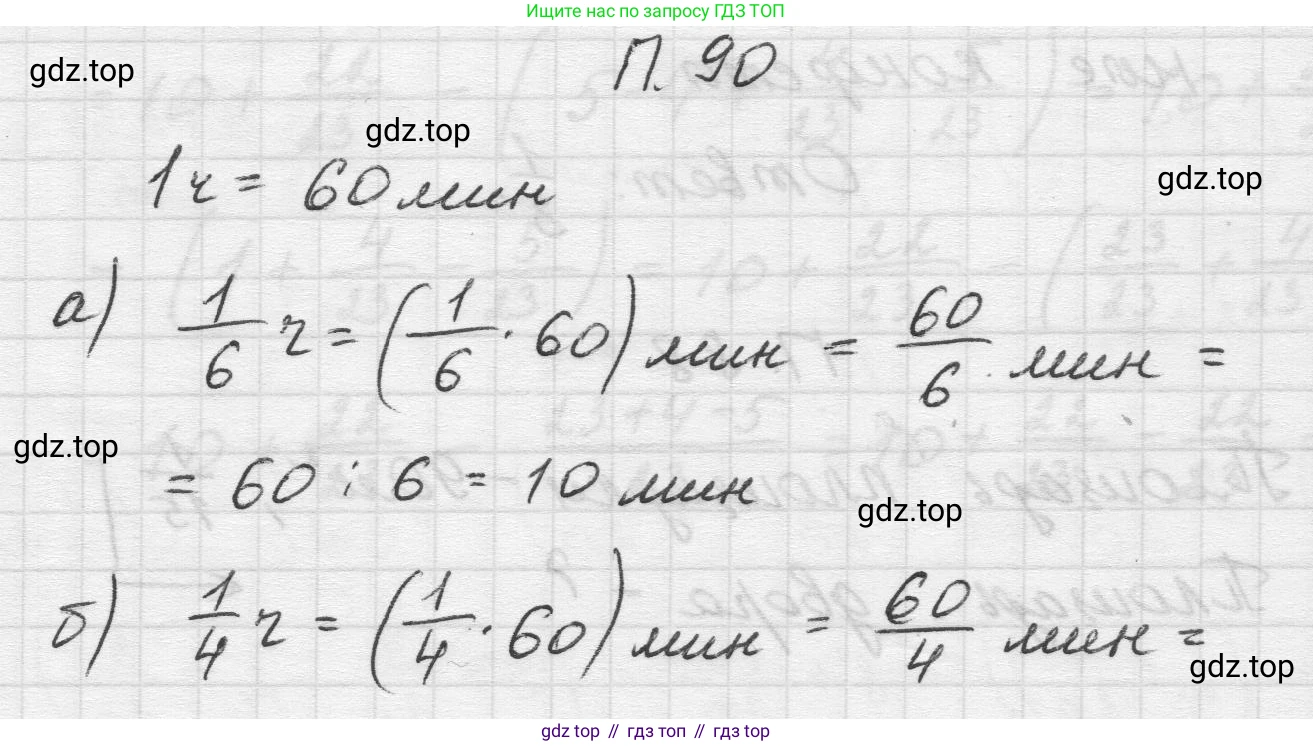 Ищите нас по запросу ГДЗ ТОП
П. 90
gdz.top
gdz.top
1 ч = 60 мин
gdz.top
а) 1/6 ч = (1/6 · 60) мин = 60/6 мин =
gdz.top
= 60 : 6 = 10 мин
gdz.top
б) 1/4 ч = (1/4 · 60) мин = 60/4 мин =
gdz.top
gdz.top // гдз топ // гдз top